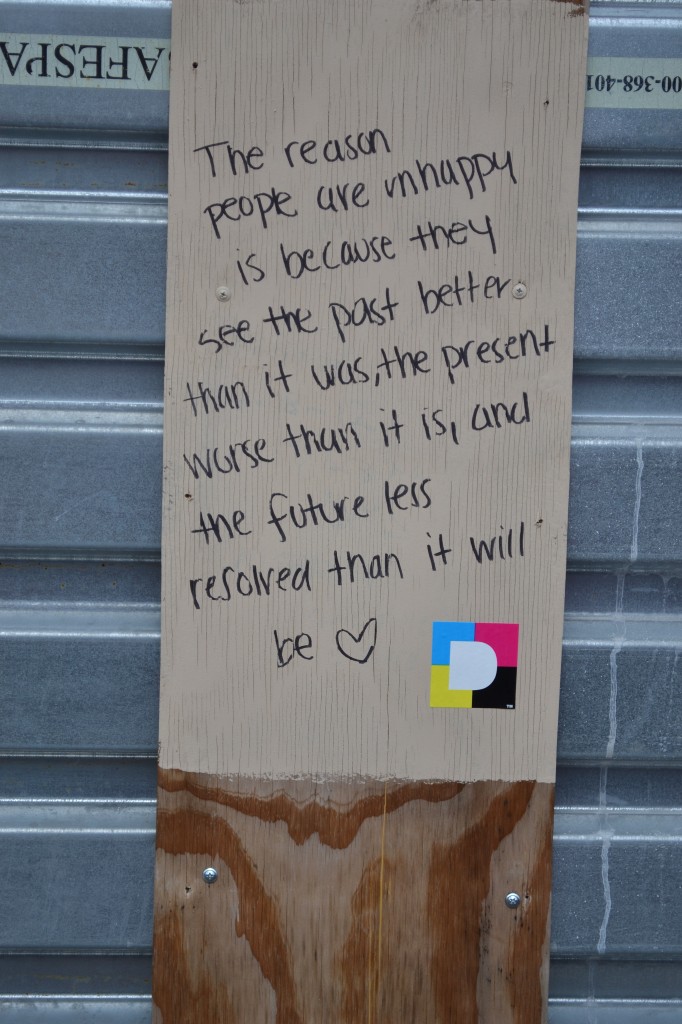 AFESPA
00-368-401
The reason
people are unhappy
is because they
see the past better
than it was, the present
worse than it is, and
the future less
resolved than it will
be ♡
D
TM